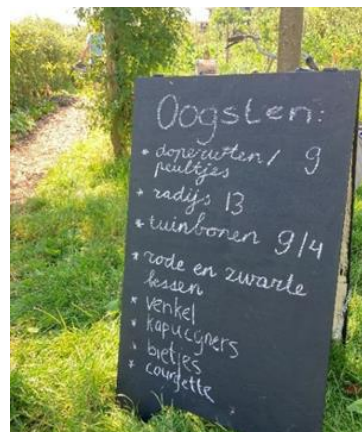 Oogsten:
* doperwten/ 9
peultjes
* radijs 13
* tuinbonen 9/4
* rode en zwarte
bessen
* venkel
* kapucijners
* bietjes
* courgette